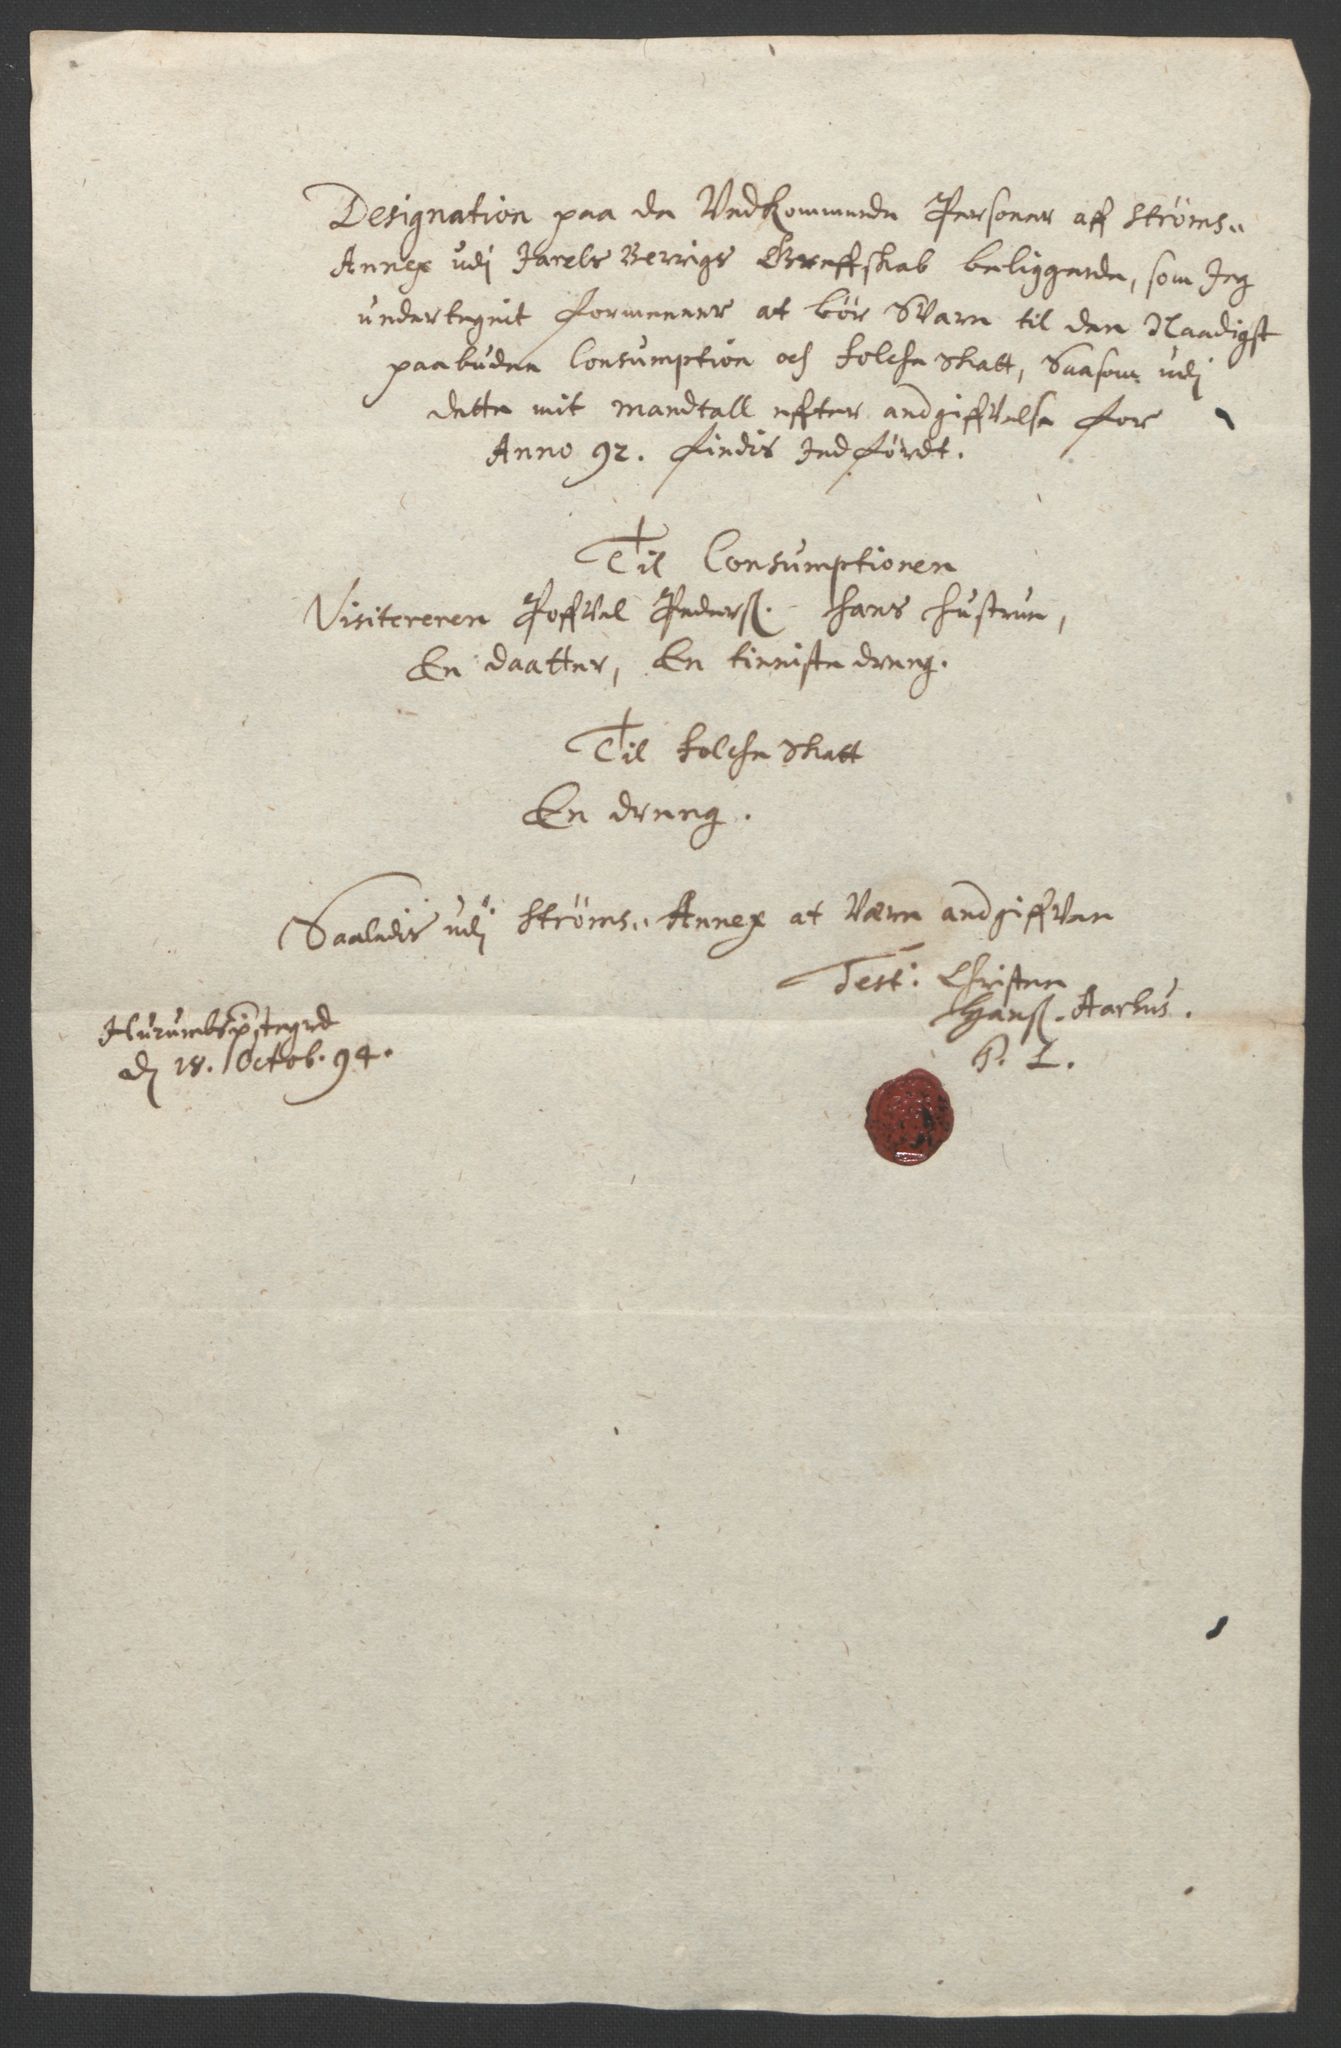 Designation paa de Vedkommende Personer aff Ströms..
Annex udj Jarels Berrigs Greffskab beliggende, som Jeg
undertegnit formeener at bör Svare til den Naadigst
paabudne Consumption och folche Skatt, Saasom udj
dette mit mandtall effter andgiffvelse for
Anno 92. findis Indfördt.
Til Consumptionen
Visitereren Poffvel Pederß. hans hustrue,
En daatter, En tieniste dreng.
Til folche Skatt
En dreng.
Saaledis udj Ströms.. Annex at Være andgiffven
Test: Christen
Hanß. Aarhus.
P. L.
Hurumbs
d 18. Octob. 94.